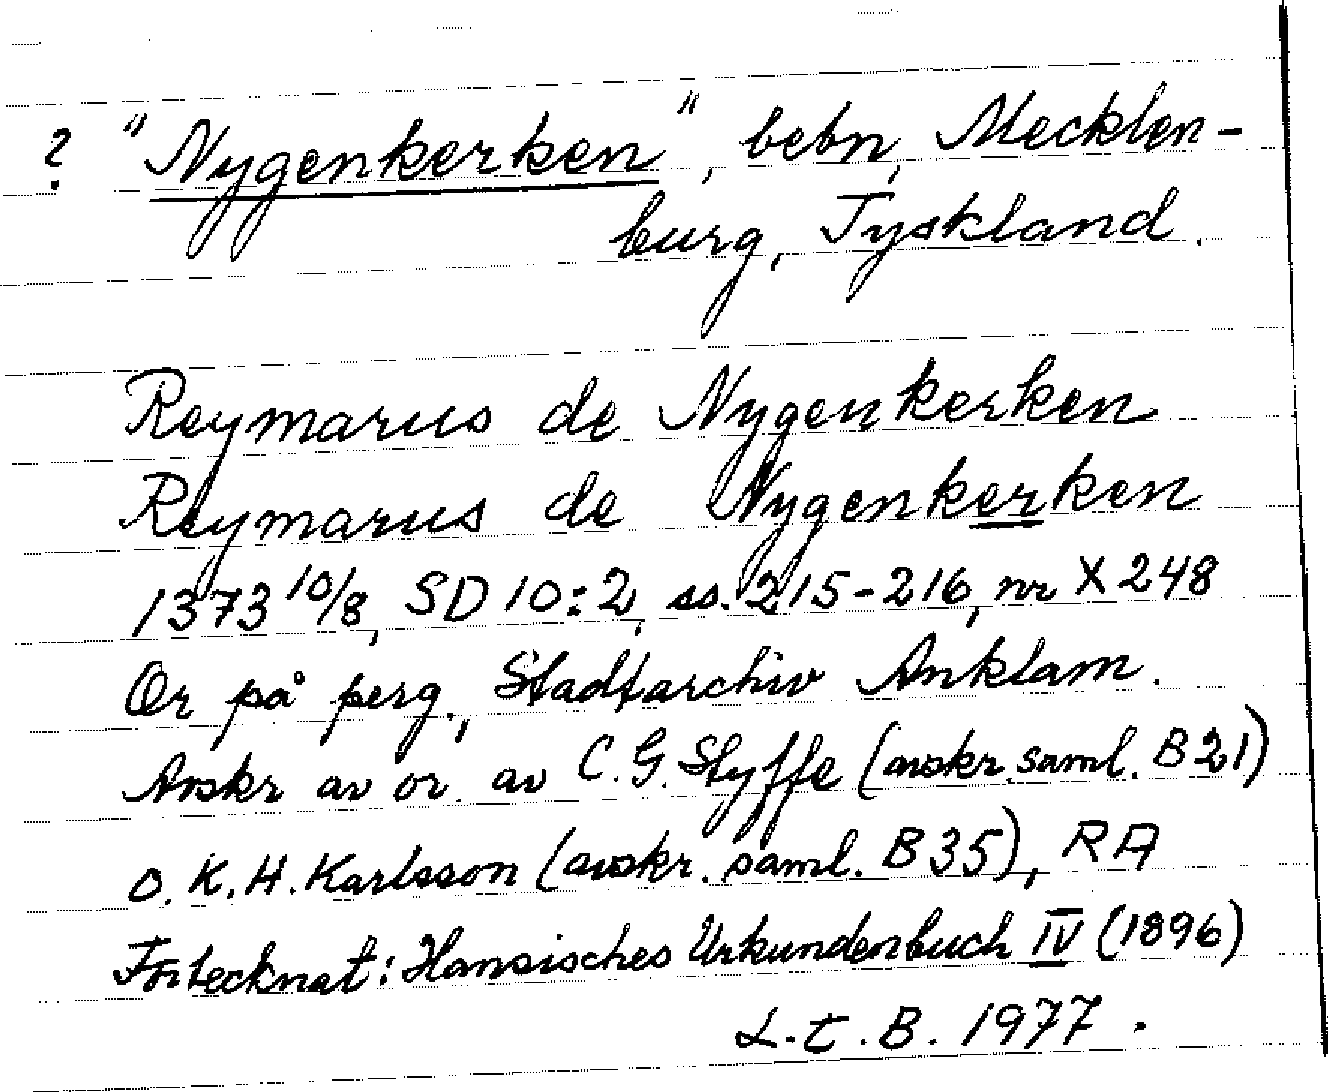 ? "Nygenkerken", bebn, Mecklen-
burg, Tyskland.
Reymarus de Nygenkerken
Reymarus de Nygenkerken
1373 10/8, SD 10:2, ss. 215-216, nr X 248
Or på perg., Stadtarchiv Anklam.
Avskr av or. av C.G. Styffe (avskr.saml. B21)
o. K.H. Karlsson (avskr. saml. B35), RA
Förtecknat: Hansisches Urkundenbuch IV (1896)
L.t.B. 1977.